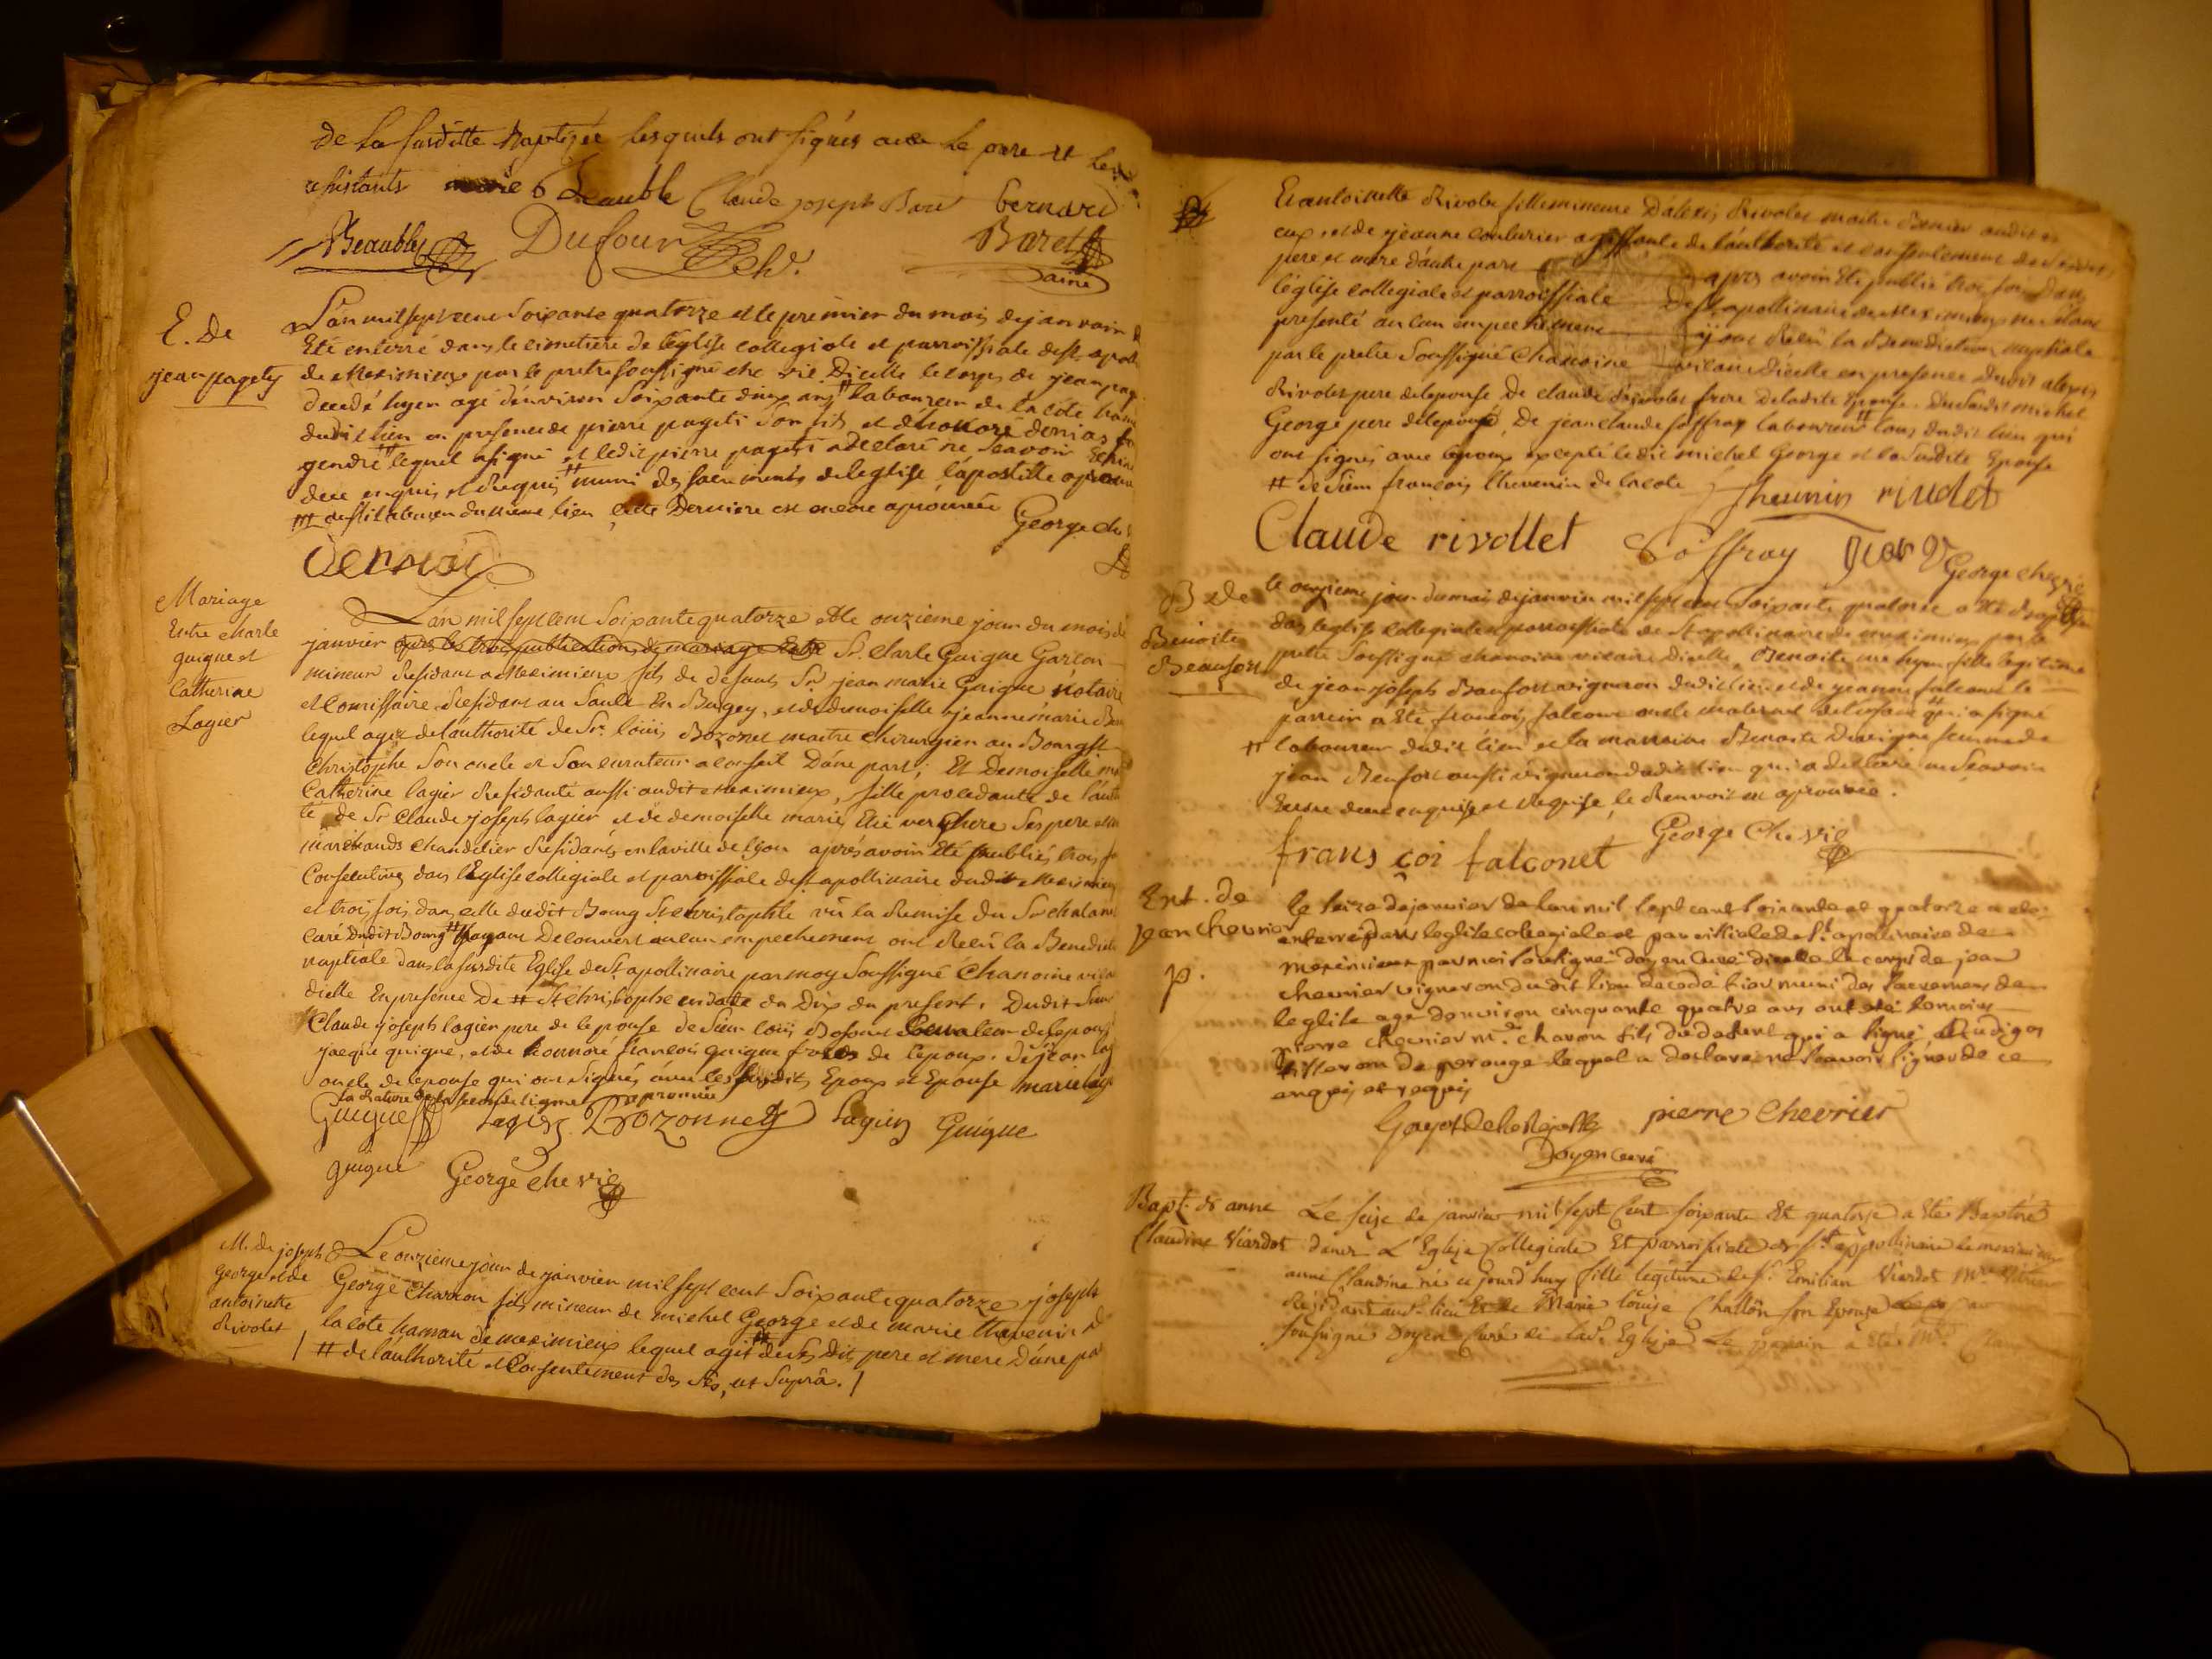 de la susditte Baptisée lesquels ont signés avec le pere et les
assistants Beauble Claude joseph Baret bernard
Beauble Dufour Baret
ch. ainé
E. de
jean pagety
L'an mil sept cent soixante quatorze et le premier du mois de janvoir a
Eté enterré dans le cimetiere de l'eglise collegiale et parroissiale de st apoli
de Meximieux par le pretre soussigné che vic. Dicelle le corps de jean pag
decedé hyer agé d'environ soixante dix ans # laboureur de la côte
dudit lieu en presence de pierre pageti son fils et d'honoré dernias son
gendre # lequel a signé et ledit pierre pageti a declaré ne sçavoir Ecrire
dece enquis et requis # muni des sacrements de l'eglise l'apostille
du même lieu cette Derniere est encore aprouvée George ch
dernias
Mariage
Entre charle
guigue et
Catherine
Lagier
L'an mil sept cent soixante quatorze et le onzieme jour du mois de
janvier après les trois publications de mariage Entre Sr. charle Guigue Garcon
mineur Residant a Meximieux fils de defunts Sr jean marie Guigue notaire
et Comissaire Residant au Sault En Bugey, et de demoiselle jeanne marie
lequel agit de l'authorité de Sr. loüis Bozonet maitre chirurgien au Bourg St
Christôphe son oncle et son curateur a cest effet D'une part; Et Demoiselle
Catherine lagier Residante aussi audit meximieux, fille procedante de l'auth
té de Sr Claude joseph lagier et de demoiselle marie verchere ses pere et m
marchands chandelier Residants en la ville de lyon après avoir Eté publiés trois f
Consecutives dans l'Eglise collegiale et paroissiale de st apollinaire dudit Meximieux
et trois fois dans celle dudit Bourg St christophle vû la Remise du Sr chatan
curé Dudit Bourg # n'ayant Decouvert aucun empechement ont Reçu la Benedicti
nuptiale dans la susdite Eglise de St apollinaire par moy soussigné Chanoine vica
dicelle En presence De # St Christophe en date du Dix du present. Dudit sieur
Claude joseph lagier pere de l'epouse de sieur loüis Bosonet Curateur de l'epoux
jacque guigue, et de honnoré françois guigue freres de l'epoux. De jean lag
oncle de l'epouse qui ont signés avec les susdits Epoux et Epouse marie lagi
la Rature de la seconde ligne aprouvée
Guigue Lagier Bozonnet Lagier Guigue
guigue George che vic
M. de joseph
George et de
antoinette
Rivolet
Le onzieme jour de janvier mil sept cent soixante quatorze joseph
George Charron fils mineur de michel George et de marie thevenin d
la côte hanan de meximieux lequel agit # desdits pere et mere D'une pa
# de l'authorité et Consentement des Sts, ut supra.
Et antoinette Rivolet fille mineure D'alexis Rivolet maitre audit
et de jeanne couturier agissante de l'authorité et consentement de
pere et mere d'autre part après avoir Eté publié trois fois Dans
l'église collegiale et parroissiale De St apollinaire de Meximieux
presenté aucun empechement ayant Reçû la Benediction nuptiale
par le pretre Soussigné Chanoine vicaire d'icelle en presence Dudit alexis
Rivolet pere de l'epouse De claude Rivolet frere De ladite Epouse. Du susdit michel
George pere de l'epoux, De jean claude soffray laboureur # tous dudit lieu qui
ont signés avec l'epoux excepté ledit michel George et la susdite Epouse
# de sieur françois thevenin de la cote thevenin rivolet
Claude rivollet Soffray George che vic
B. de
Benoite
Beaufort
le onzieme jour du mois de janvier mil sept cent soixante quatorze a Eté Baptisée
dans l'eglise collegiale et parroissiale de St apollinaire de meximieux par le
pretre soussigné chanoine vicaire dicelle, Benoite née hyer fille legitime
de jean joseph Baufort vigneron dudit lieu et de jeanne falconet le
parrein a Eté françois falconet oncle maternel de l'enfant # qui a signé
# laboureur dudit lieu et la marraine Benoite Duvigne femme de
jean Beaufort aussi vigneron dudit lieu qui a declaré ne sçavoir
Ecrire dece enquise et requise, le Renvoit est aprouvée.
frans çoi falconet George Che vic
Ent. de
jean chevrier
p.
le seize de janvier de l'an mil sept cent soixante et quatorze a eté
enterré dans l'eglise colegiale et paroissiale de St apollinaire de
meximieux par moi soussigné doyen curé dicelle le corps de jean
chevrier vigneron dudit lieu decedé hier muni des sacremens de
l'eglise agé d'environ cinquante quatre ans ont eté temoins
pierre chevrier md charon fils du defunt qui a signé
tisseron de perouge lequel a declaré ne sçavoir signer de ce
enquis et requis
Goyot pierre chevrier
Doyen curé
Bapt. de anne
Claudine Viardot
Le seize de janvier mil sept Cent soixante Et quatorze a Eté Baptisé
dans L'Eglise Collegiale Et parroissiale de St appollinaire de meximieux
anne Claudine née ce jourd'huy fille legitime de Sr. Emilian Viardot
Residant audt lieu Et de Marie loüise Challôn son Epouse par
soussigné Doyen Curé de ladt. Eglise Le parain a Eté Mre.